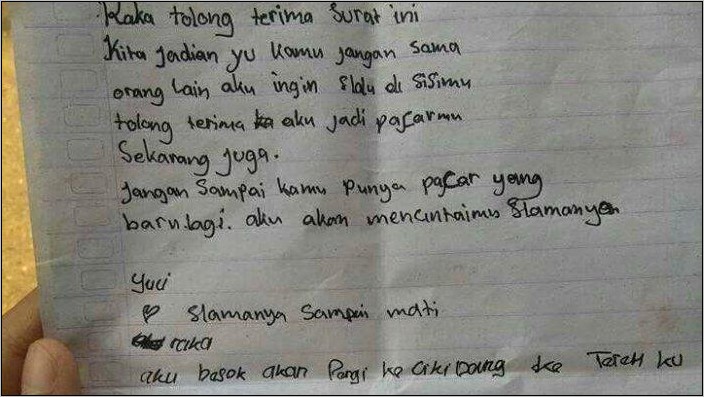 Raka tolong terima surat ini
Kita jadian yu kamu jangan sama
orang lain aku ingin slalu di sisimu
tolong terima aku jadi pacarmu
Sekarang juga.
jangan sampai kamu punya pacar yang
baru.lagi. aku akan mencintaimu slamanya
Yuci
♡ slamanya sampai mati
raka
aku besok akan Pergi ke ke